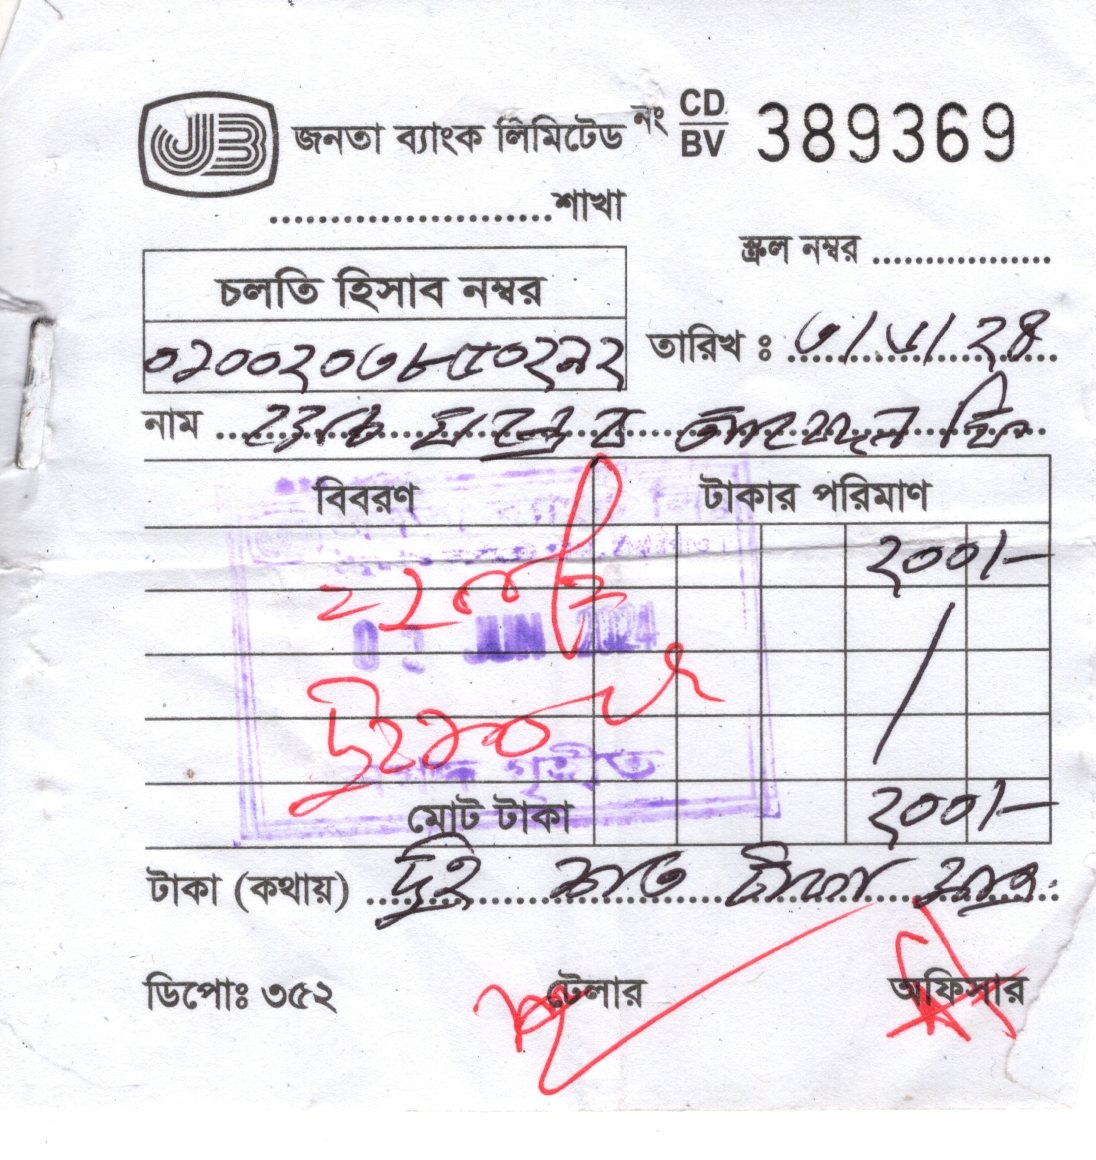 JB জনতা ব্যাংক লিমিটেড নং CD/BV 389369
......................শাখা
স্ক্রল নম্বর ..................
চলতি হিসাব নম্বর
০১০০২০৩৮৫০২৯২
তারিখ : ৩/৬/২৪
নাম
বিবরণ টাকার পরিমাণ
২০০/-
JUN 2024
গৃহীত
মোট টাকা ২০০/-
টাকা (কথায়) দুই শত টাকা মাত্র
ডিপোঃ ৩৫২ টেলার অফিসার